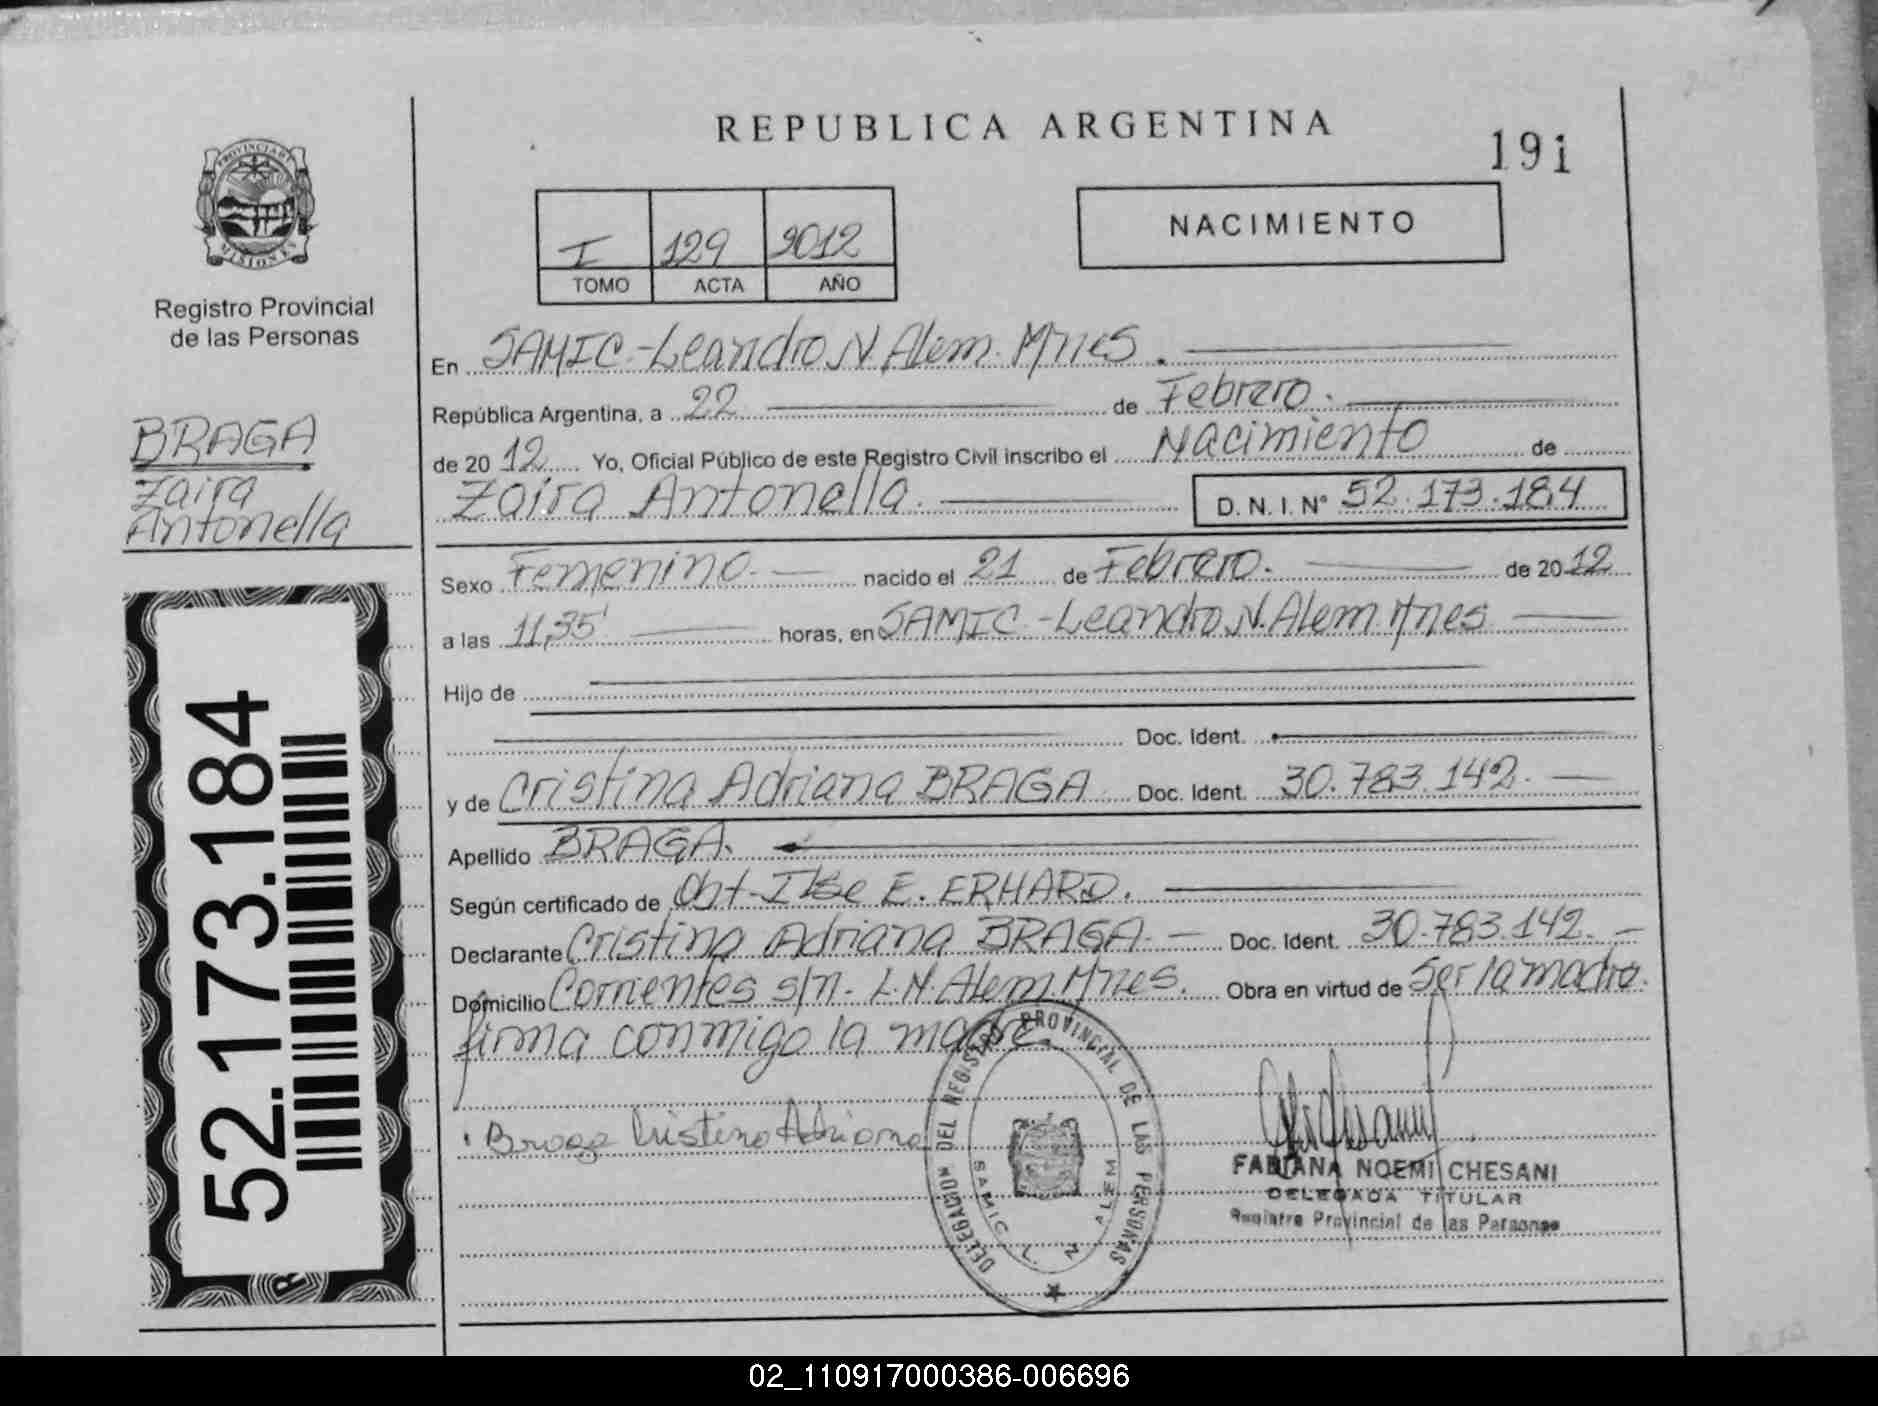 REPUBLICA ARGENTINA
191
PROVINCIA DE
MISIONES
Registro Provincial
de las Personas
I 129 2012
TOMO ACTA AÑO
NACIMIENTO
BRAGA
Zaira
Antonella
52.173.184
En SAMIC-Leandro N. Alem. Mnes.
República Argentina, a 22 de Febrero.
de 2012 Yo, Oficial Público de este Registro Civil inscribo el Nacimiento de
Zaira Antonella. D. N. I. N° 52.173.184
Sexo Femenino. nacido el 21 de Febrero. de 2012
a las 11,35' horas, en SAMIC-Leandro N. Alem. Mnes
Hijo de
Doc. Ident.
y de Cristina Adriana BRAGA Doc. Ident. 30.783.142.
Apellido BRAGA.
Según certificado de Obt. Ilse E. ERHARD.
Declarante Cristina Adriana BRAGA. Doc. Ident. 30.783.142.
Domicilio Corrientes s/n. L.N. Alem. Mnes. Obra en virtud de ser la madre.
firma conmigo la madre.
Braga Cristina Adriana
DELEGACION DEL REGISTRO PROVINCIAL DE LAS PERSONAS
SAMIC L. N. ALEM
FABIANA NOEMI CHESANI
DELEGADA TITULAR
Registro Provincial de las Personas
02_110917000386-006696